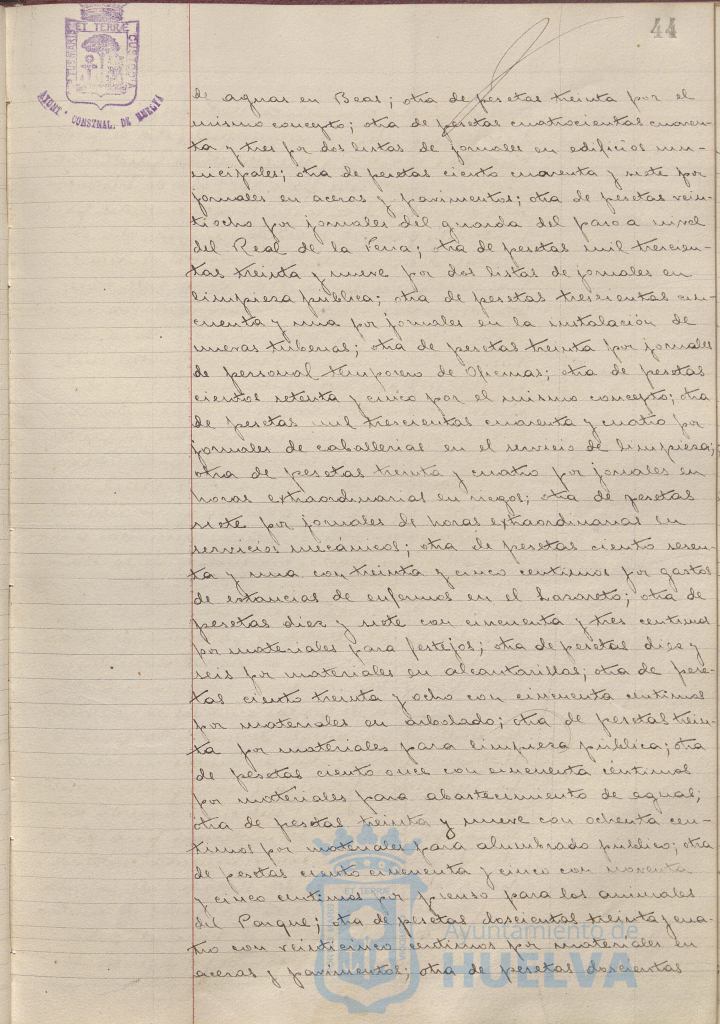 44
ET TERRÆ
AYONT. CONSTNAL. DE HUELVA
de aguas en Beas; otra de pesetas treinta por el
mismo concepto; otra de pesetas cuatrocientas cuaren-
ta y tres por dos listas de jornales en edificios mu-
nicipales; otra de pesetas ciento cuarenta y siete por
jornales en aceras y pavimentos; otra de pesetas vein-
tiocho por jornales del guarda del paso a nivel
del Real de la Feria; otra de pesetas mil trescien-
tas treinta y nueve por dos listas de jornales en
limpieza pública; otra de pesetas trescientas cin-
cuenta y una por jornales en la instalación de
nuevas tuberias; otra de pesetas treinta por jornales
de personal temporero de Oficinas; otra de pesetas
cientos setenta y cinco por el mismo concepto; otra
de pesetas mil trescientas cuarenta y cuatro por
jornales de caballerias en el servicio de limpieza;
otra de pesetas treinta y cuatro por jornales en
horas extraordinarias en riegos; otra de pesetas
siete por jornales de horas extraordinarias en
servicios mecánicos; otra de pesetas ciento sesen-
ta y una con treinta y cinco centimos por gastos
de estancias de enfermos en el Lazareto; otra de
pesetas diez y siete con cincuenta y tres centimos
por materiales para festejos; otra de pesetas diez y
seis por materiales en alcantarillas; otra de pese-
tas ciento treinta y ocho con cincuenta centimos
por materiales en arbolado; otra de pesetas trein-
ta por materiales para limpieza pública; otra
de pesetas ciento once con cincuenta céntimos
por materiales para abastecimiento de aguas;
otra de pesetas treinta y nueve con ochenta cen-
timos por materiales para alumbrado público; otra
de pesetas ciento cincuenta y cinco con noventa
y cinco centimos por pienso para los animales
del Parque; otra de pesetas doscientas treinta y cua-
tro con veinticinco centimos por materiales en
aceras y pavimentos; otra de pesetas doscientas
ET TERRÆ
Ayuntamiento de
HUELVA